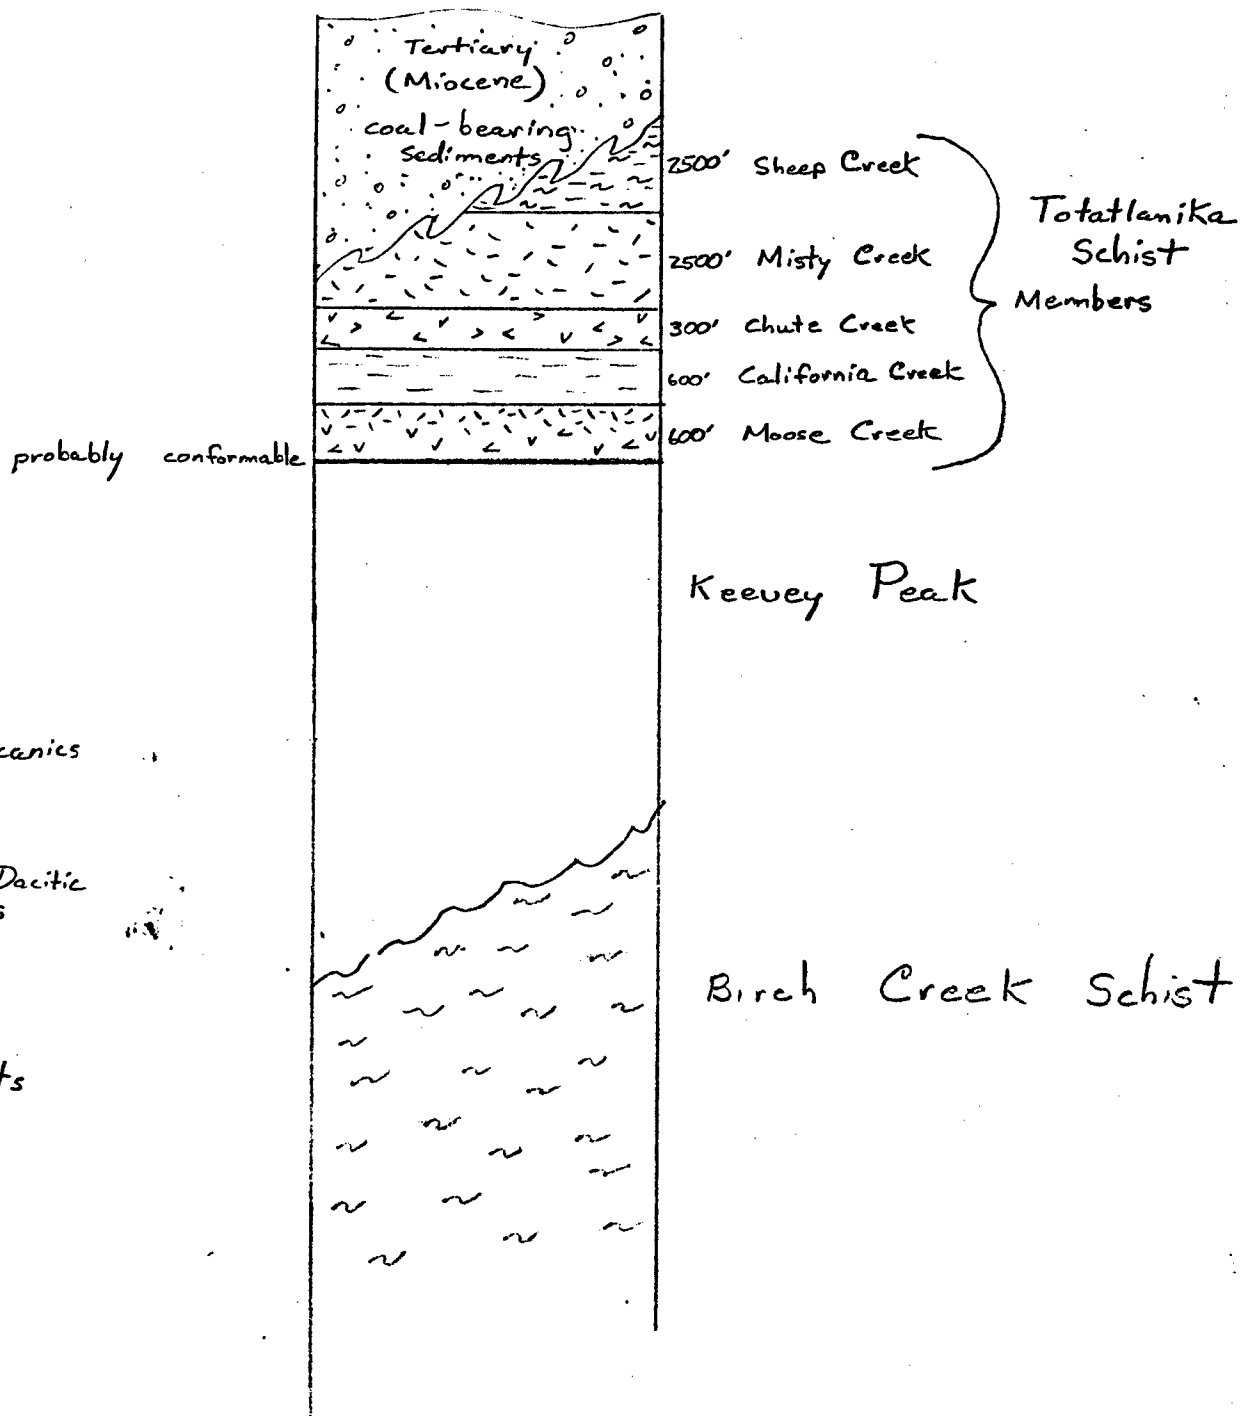 Tertiary
(Miocene)
coal-bearing
sediments
2500' Sheep Creek
2500' Misty Creek
300' Chute Creek
600' California Creek
600' Moose Creek
Totatlanika
Schist
Members
probably conformable
Keevey Peak
canics
Dacitic
s
Birch Creek Schist
ts